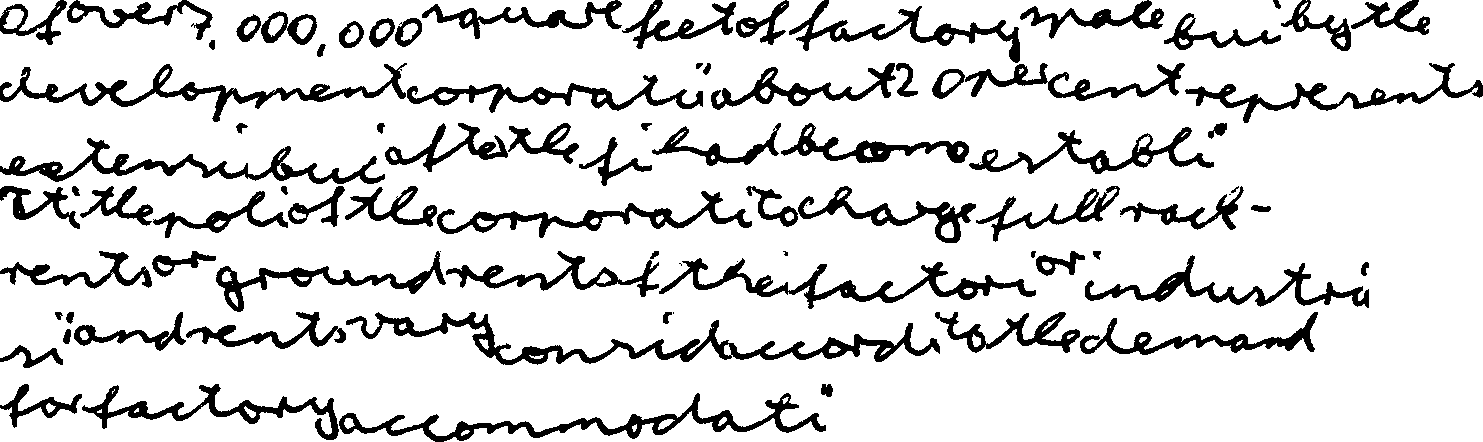 Of over 7,000,000 square feet of factory space bui by the
development corporati about 20 per cent represents
extensi bui after the fi had become establi
It i the poli of the corporati to charge full rack-
rents or ground rents f thei factori or industri
si and rents vary consid accordi to the demand
for factory accommodati